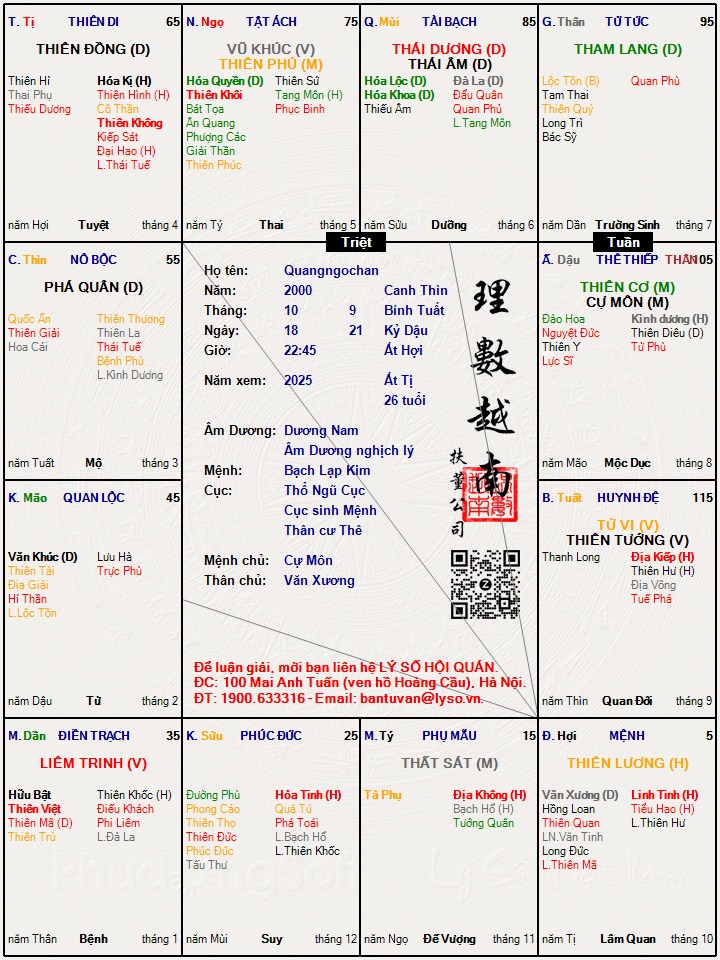 T. Tị THIÊN DI 65
THIÊN ĐỒNG (D)
Thiên Hỉ Hóa Kị (H)
Thai Phụ Thiên Hình (H)
Thiếu Dương Cô Thần
Thiên Không
Kiếp Sát
Đại Hao (H)
L.Thái Tuế
năm Hợi Tuyệt tháng 4
N. Ngọ TẬT ÁCH 75
VŨ KHÚC (V)
THIÊN PHỦ (M)
Hóa Quyền (D) Thiên Sứ
Thiên Khôi Tang Môn (H)
Bát Tọa Phục Binh
Ân Quang
Phượng Các
Giải Thần
Thiên Phúc
năm Tý Thai tháng 5
Q. Mùi TÀI BẠCH 85
THÁI DƯƠNG (D)
THÁI ÂM (D)
Hóa Lộc (D) Đà La (D)
Hóa Khoa (D) Đẩu Quân
Thiếu Âm Quan Phủ
L.Tang Môn
năm Sửu Dưỡng tháng 6
G. Thân TỬ TỨC 95
THAM LANG (D)
Lộc Tồn (B) Quan Phù
Tam Thai
Thiên Quý
Long Trì
Bác Sỹ
năm Dần Trường Sinh tháng 7
Triệt
Tuần
C. Thìn NÔ BỘC 55
PHÁ QUÂN (D)
Quốc Ấn Thiên Thương
Thiên Giải Thiên La
Hoa Cái Thái Tuế
Bệnh Phù
L.Kình Dương
năm Tuất Mộ tháng 3
Họ tên: Quangngochan
Năm: 2000 Canh Thìn
Tháng: 10 9 Bính Tuất
Ngày: 18 21 Kỷ Dậu
Giờ: 22:45 Ất Hợi
Năm xem: 2025 Ất Tị
26 tuổi
Âm Dương: Dương Nam
Âm Dương nghịch lý
Mệnh: Bạch Lạp Kim
Cục: Thổ Ngũ Cục
Cục sinh Mệnh
Thân cư Thê
Mệnh chủ: Cự Môn
Thân chủ: Văn Xương
理數越南
扶董公司
Để luận giải, mời bạn liên hệ LÝ SỐ HỘI QUÁN.
ĐC: 100 Mai Anh Tuấn (ven hồ Hoàng Cầu), Hà Nội.
ĐT: 1900.633316 - Email: bantuvan@lyso.vn.
Ấ. Dậu THÊ THIẾP THÂN 105
THIÊN CƠ (M)
CỰ MÔN (M)
Đào Hoa Kình dương (H)
Nguyệt Đức Thiên Diêu (D)
Thiên Y Tử Phù
Lực Sĩ
năm Mão Mộc Dục tháng 8
K. Mão QUAN LỘC 45
Văn Khúc (D) Lưu Hà
Thiên Tài Trực Phù
Địa Giải
Hỉ Thần
L.Lộc Tồn
năm Dậu Tử tháng 2
B. Tuất HUYNH ĐỆ 115
TỬ VI (V)
THIÊN TƯỚNG (V)
Thanh Long Địa Kiếp (H)
Thiên Hư (H)
Địa Võng
Tuế Phá
năm Thìn Quan Đới tháng 9
M. Dần ĐIỀN TRẠCH 35
LIÊM TRINH (V)
Hữu Bật Thiên Khốc (H)
Thiên Việt Điếu Khách
Thiên Mã (D) Phi Liêm
Thiên Trù L.Đà La
năm Thân Bệnh tháng 1
K. Sửu PHÚC ĐỨC 25
Đường Phù Hỏa Tinh (H)
Phong Cáo Quả Tú
Thiên Thọ Phá Toái
Thiên Đức L.Bạch Hổ
Phúc Đức L.Thiên Khốc
Tấu Thư
năm Mùi Suy tháng 12
M. Tý PHỤ MẪU 15
THẤT SÁT (M)
Tả Phụ Địa Không (H)
Bạch Hổ (H)
Tướng Quân
năm Ngọ Đế Vượng tháng 11
Đ. Hợi MỆNH 5
THIÊN LƯƠNG (H)
Văn Xương (D) Linh Tinh (H)
Hồng Loan Tiểu Hao (H)
Thiên Quan L.Thiên Hư
LN.Văn Tinh
Long Đức
L.Thiên Mã
năm Tị Lâm Quan tháng 10